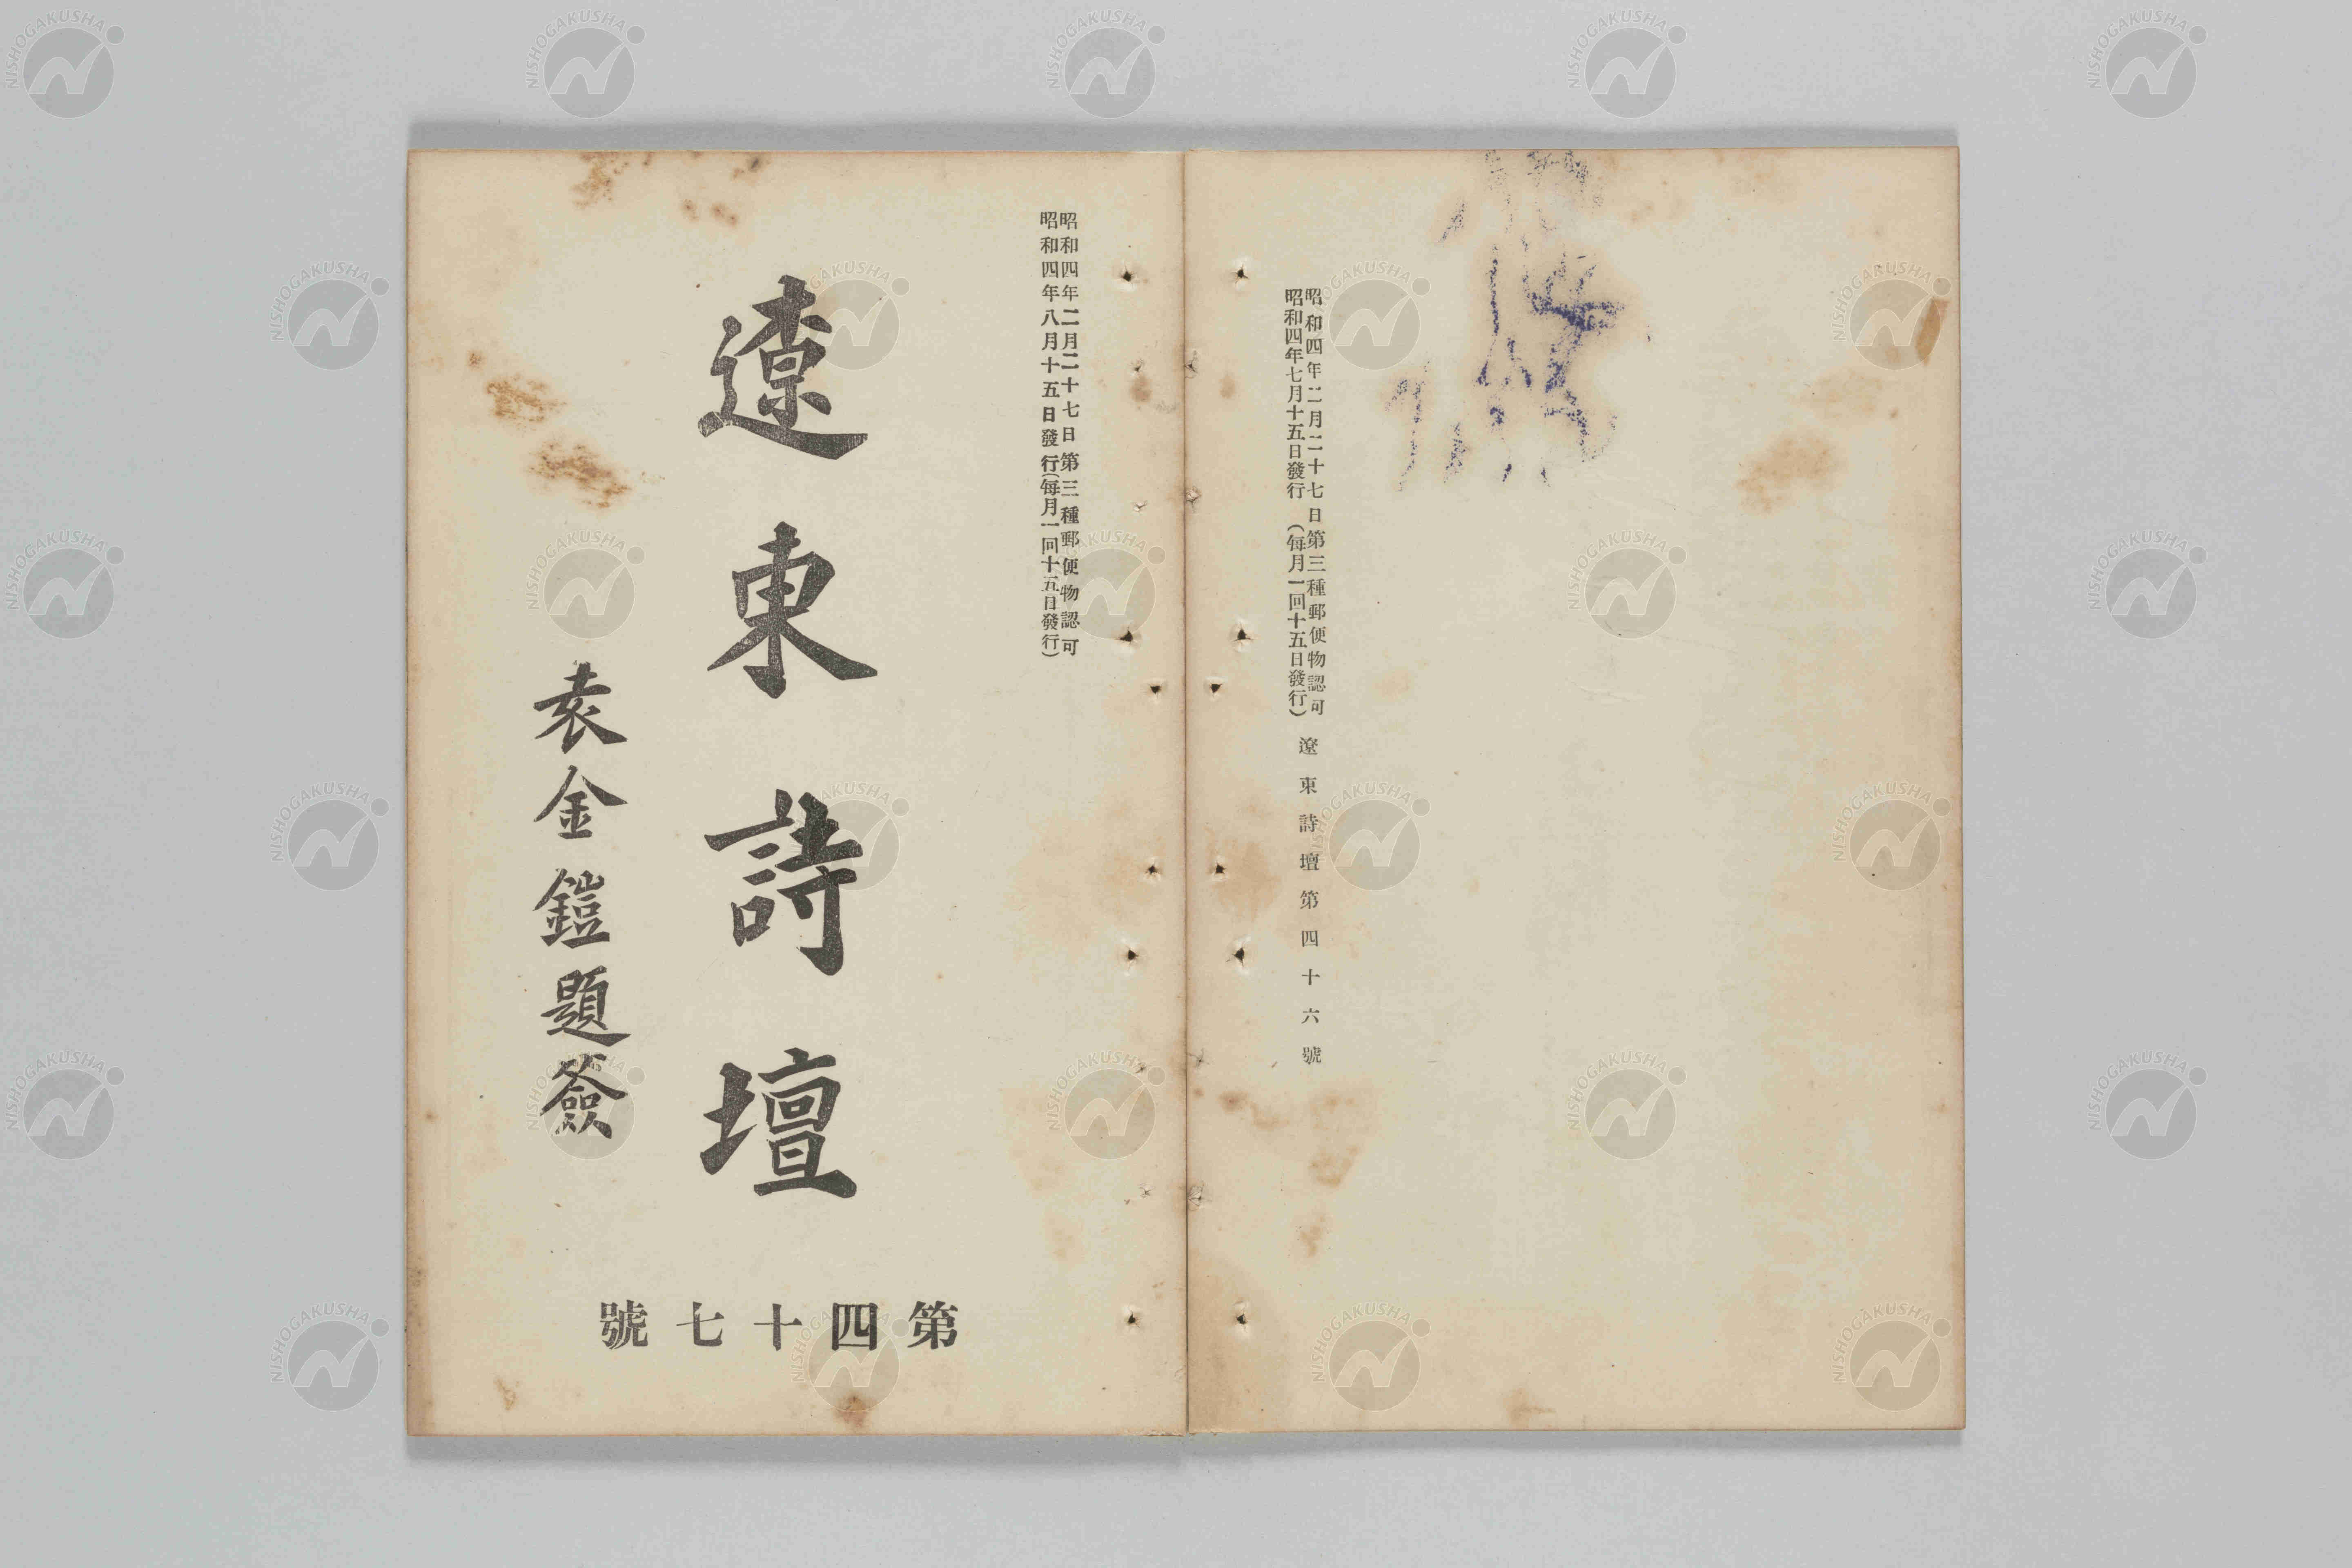 昭和四年二月二十七日第三種郵便物認可
昭和四年七月十五日發行 (每月一回十五日發行)
遼東詩壇第四十六號
昭和四年二月二十七日第三種郵便物認可
昭和四年八月十五日發行(每月一回十五日發行)
遼東詩壇
袁金鎧題簽
第四十七號
NISHOGAKUSHA